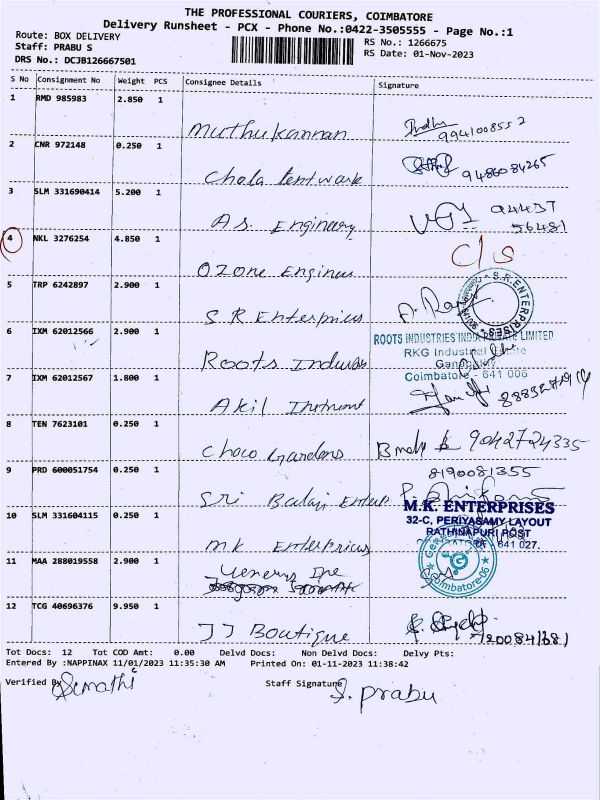 THE PROFESSIONAL COURIERS, COIMBATORE
Delivery Runsheet - PCX - Phone No.:0422-3505555 - Page No.:1
Route: BOX DELIVERY
RS No.: 1266675
Staff: PRABU S
RS Date: 01-Nov-2023
DRS No.: DCJB126667501
S No Consignment No Weight PCS Consignee Details Signature
1 RMD 985983 2.850 1
Muthukannan 9941008552
2 CNR 972148 0.250 1
Chola tentwark 9486084265
3 SLM 331690414 5.200 1
A.S. Enginery 94437
56481
4 NKL 3276254 4.850 1
C/S
OZone Engineu
5 TRP 6242897 2.900 1
S.R.ENTERPRISES
S R Enterprices
6 IXM 62012566 2.900 1
ROOTS INDUSTRIES INDIA PRIVATE LIMITED
RKG Industrial Estate
Roots Indus
Ganapathy
Coimbatore - 641 006
7 IXM 62012567 1.800 1
Akil Intrumt
8 TEN 7623101 0.250 1
Choco Gardens 9042724335
9 PRD 600051754 0.250 1
8190081355
Sri Balaji Enter
M.K. ENTERPRISES
32-C, PERIYASAMY LAYOUT
10 SLM 331604115 0.250 1
RATHINAPURI POST
641 027.
MK Enterprices
11 MAA 288019558 2.900 1
Coimbatore-06
12 TCG 40696376 9.950 1
JJ Boutique
Tot Docs: 12 Tot COD Amt: 0.00 Delvd Docs: Non Delvd Docs: Delvy Pts:
Entered By :NAPPINAX 11/01/2023 11:35:30 AM Printed On: 01-11-2023 11:38:42
Verified By Staff Signature
S. Prabu